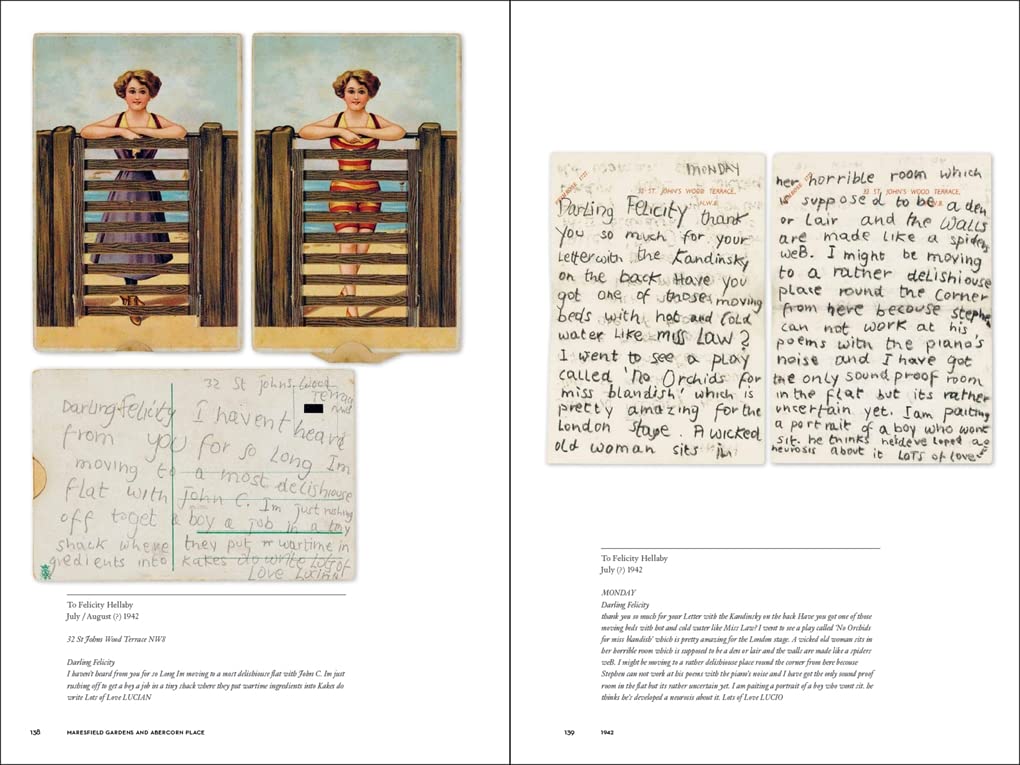 32 St Johns Wood
Terrace
NW8
Darling Felicity I havent heard
from you for so Long Im
moving to a most delishiouse
flat with John C. Im just rushing
off to get a boy a job in a tiny
shack where they put wartime in
gredients into Kakes do write Lots of
Love Lucian
To Felicity Hellaby
July / August (?) 1942
32 St Johns Wood Terrace NW8
Darling Felicity
I haven't heard from you for so Long Im moving to a most delishiouse flat with John C. Im just
rushing off to get a boy a job in a tiny shack where they put wartime ingredients into Kakes do
write Lots of Love LUCIAN
138 MARESFIELD GARDENS AND ABERCORN PLACE
MONDAY
32 ST. JOHN'S WOOD TERRACE,
N.W.8
Darling Felicity thank
you so much for your
Letter with the Kandinsky
on the back Have you
got one of those moving
beds with hot and Cold
water like miss Law?
I went to see a play
called 'No Orchids for
miss blandish' which is
pretty amazing for the
London stage. A wicked
old woman sits in
her horrible room which
32 ST. JOHN'S WOOD TERRACE,
N.W.8
is supposed to be a den
or Lair and the Walls
are made like a spiders
weB. I might be moving
to a rather delishiouse
place round the corner
from here becouse stephen
can not work at his
poems with the piano's
noise and I have got
the only sound proof room
in the flat but its rather
uncertain yet. I am paiting
a portrait of a boy who wont
sit. he thinks he's developed a
neurosis about it LOTS of Love
To Felicity Hellaby
July (?) 1942
MONDAY
Darling Felicity
thank you so much for your Letter with the Kandinsky on the back Have you got one of those
moving beds with hot and cold water like Miss Law? I went to see a play called 'No Orchids
for miss blandish' which is pretty amazing for the London stage. A wicked old woman sits in
her horrible room which is supposed to be a den or lair and the walls are made like a spiders
weB. I might be moving to a rather delishiouse place round the corner from here becouse
Stephen can not work at his poems with the piano's noise and I have got the only sound proof
room in the flat but its rather uncertain yet. I am paiting a portrait of a boy who wont sit. he
thinks he's developed a neurosis about it. Lots of Love LUCIO
139 1942